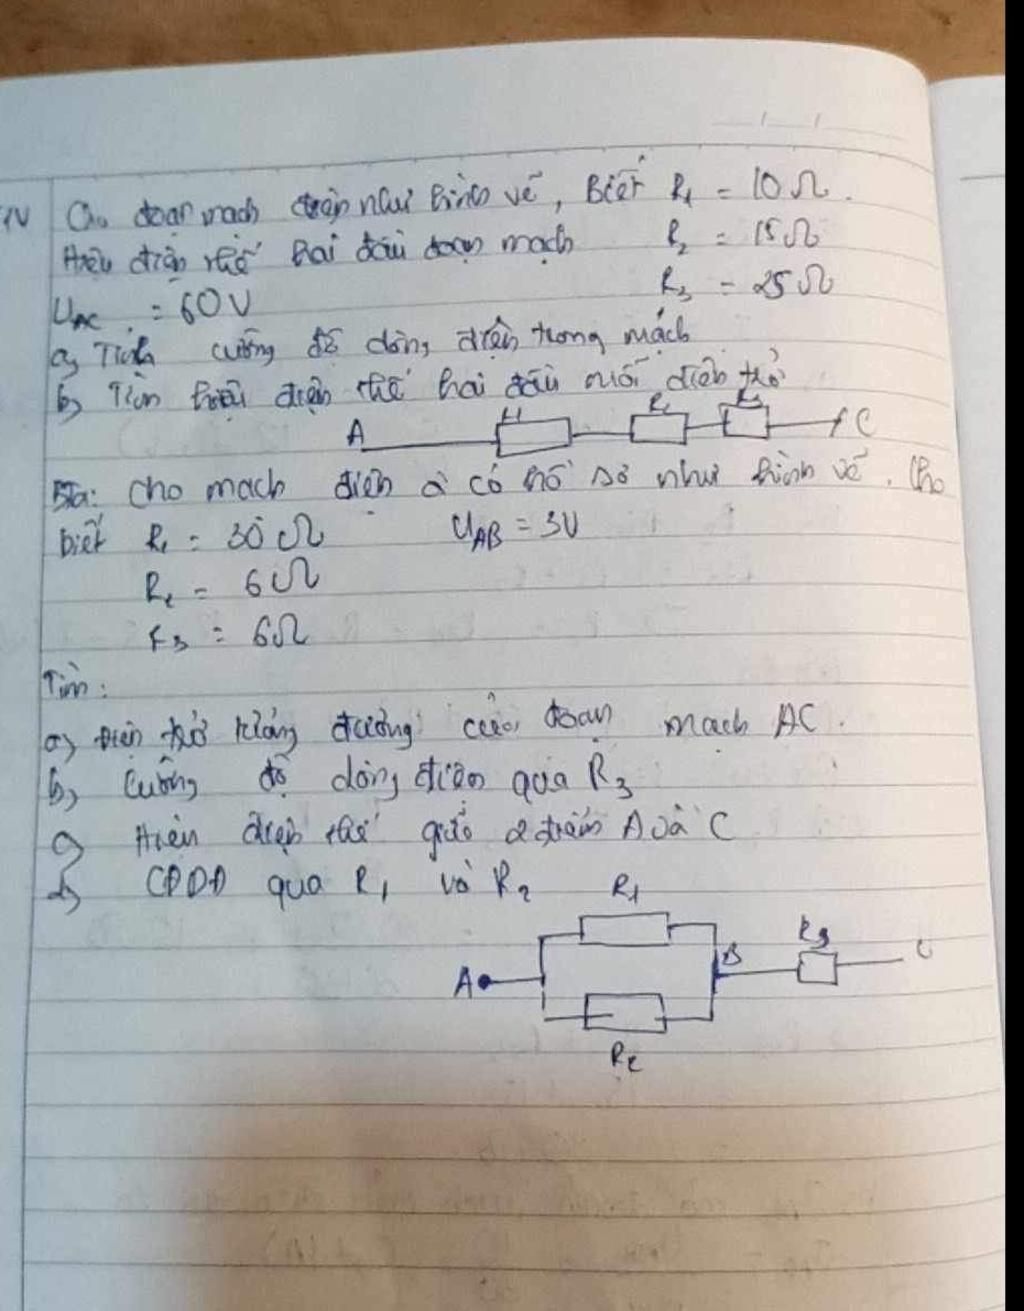 Cho đoạn mạch điện như hình vẽ, Biết R₁ = 10 Ω.
Hiệu điện thế hai đầu đoạn mạch R₂ = 15 Ω
U_AC = 60 V R₃ = 25 Ω
a, Tính cường độ dòng điện trong mạch
b, Tìm hiệu điện thế hai đầu mỗi điện trở
R₂
A C
Cho mạch điện có số như hình vẽ. Cho
biết R₁ = 30 Ω U_AB = 3V
R₂ = 6 Ω
R₃ = 6 Ω
Tìm:
a, Điện trở tương đương của đoạn mạch AC.
b, Cường độ dòng điện qua R₃
Hiệu điện thế giữa 2 điểm A và C
CĐDĐ qua R₁ và R₂
R₁
R₃
A B C
R₂